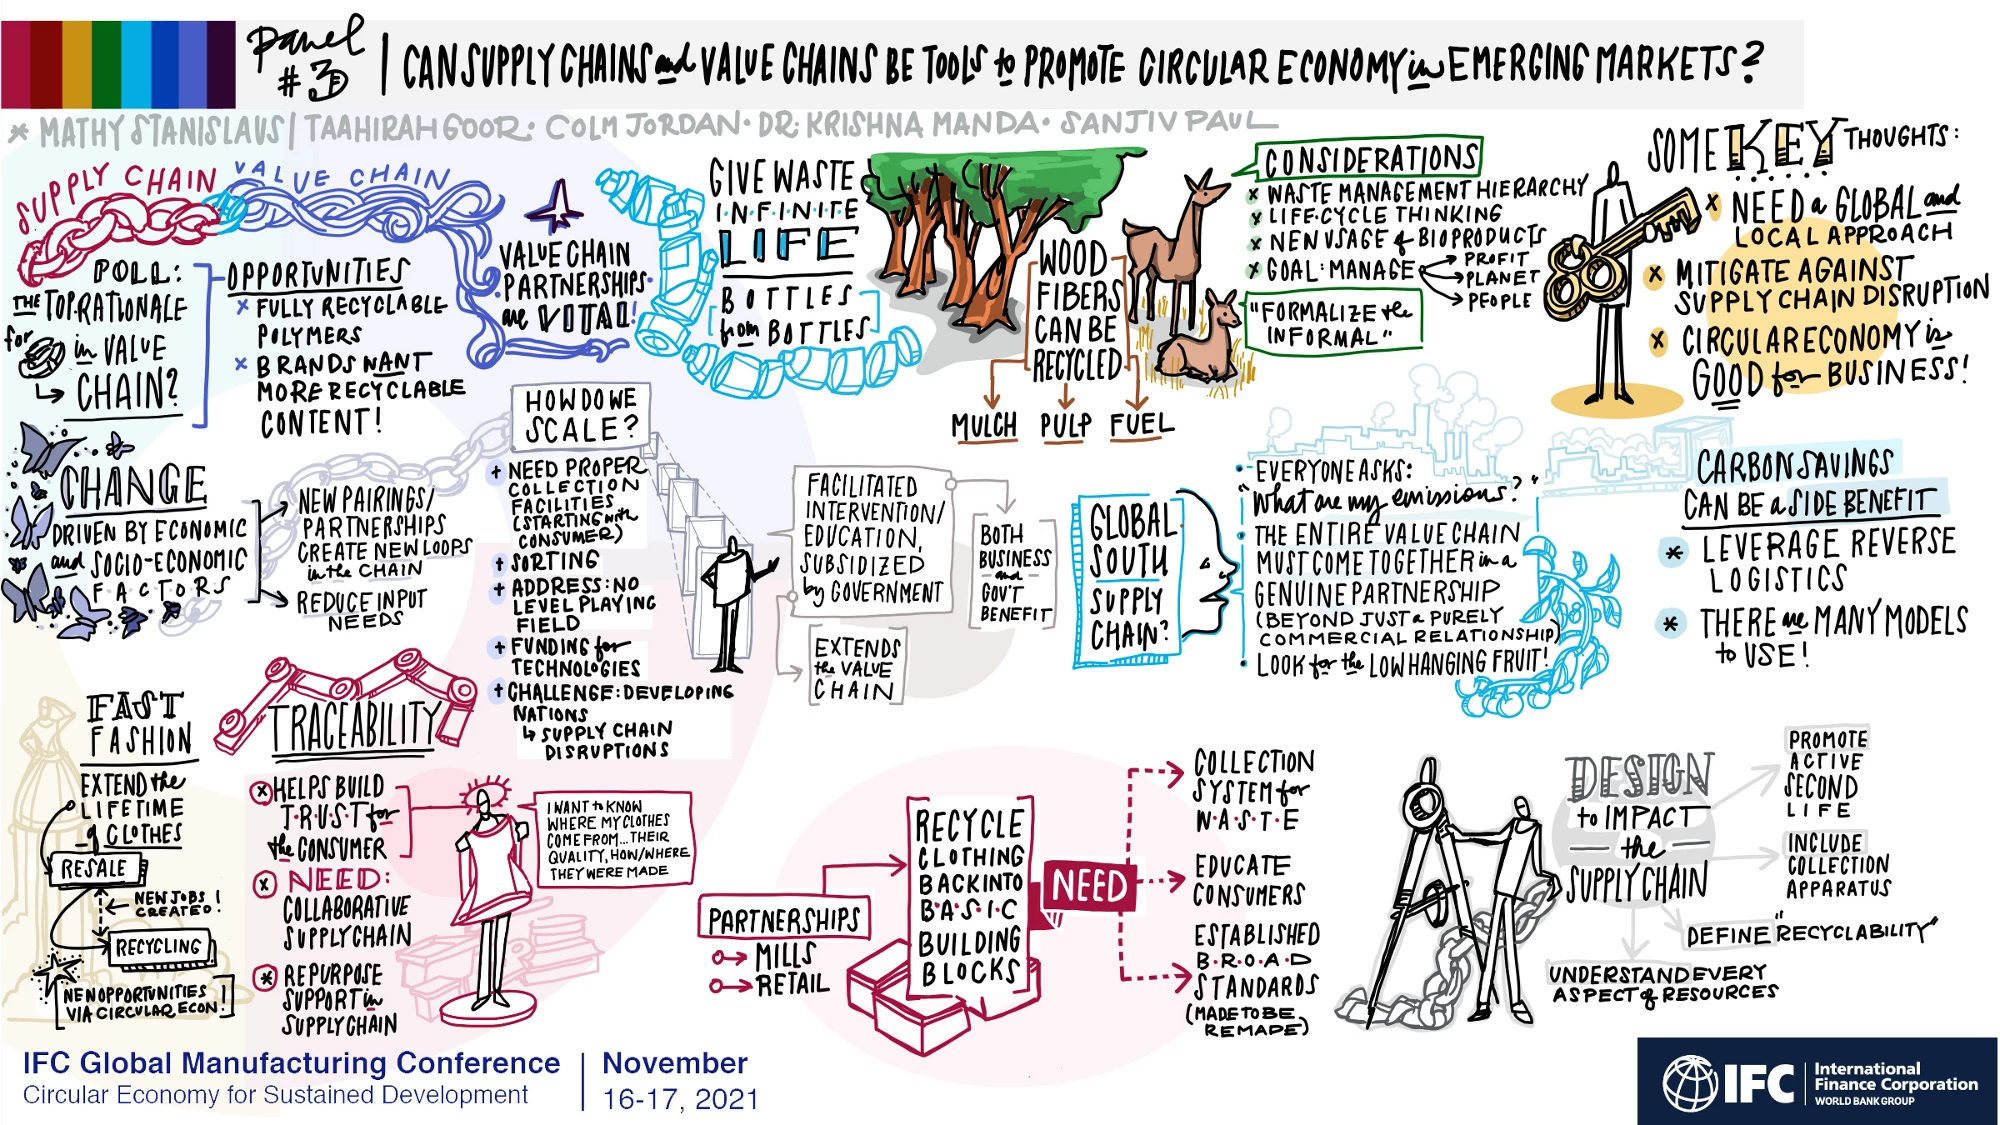 Panel #3 | CAN SUPPLY CHAINS and VALUE CHAINS BE TOOLS to PROMOTE CIRCULAR ECONOMY in EMERGING MARKETS?
* MATHY STANISLAUS | TAAHIRAH GOOR · COLM JORDAN · DR. KRISHNA MANDA · SANJIV PAUL
SUPPLY CHAIN
VALUE CHAIN
POLL:
THE TOP RATIONALE
for
in VALUE
CHAIN?
OPPORTUNITIES
x FULLY RECYCLABLE
POLYMERS
x BRANDS WANT
MORE RECYCLABLE
CONTENT!
VALUE CHAIN
PARTNERSHIPS
are VITAL!
GIVE WASTE
INFINITE
LIFE
BOTTLES
from BOTTLES
WOOD
FIBERS
CAN BE
RECYCLED
MULCH
PULP
FUEL
CONSIDERATIONS
x WASTE MANAGEMENT HIERARCHY
x LIFE-CYCLE THINKING
x NEW USAGE of BIOPRODUCTS
x GOAL: MANAGE
PROFIT
PLANET
PEOPLE
"FORMALIZE the
INFORMAL"
SOME KEY THOUGHTS:
x NEED a GLOBAL and
LOCAL APPROACH
x MITIGATE AGAINST
SUPPLY CHAIN DISRUPTION
x CIRCULAR ECONOMY is
GOOD for BUSINESS!
CHANGE
DRIVEN BY ECONOMIC
and SOCIO-ECONOMIC
FACTORS
NEW PAIRINGS/
PARTNERSHIPS
CREATE NEW LOOPS
in the CHAIN
REDUCE INPUT
NEEDS
HOW DO WE
SCALE?
+ NEED PROPER
COLLECTION
FACILITIES
(STARTING with
CONSUMER)
+ SORTING
+ ADDRESS: NO
LEVEL PLAYING
FIELD
+ FUNDING for
TECHNOLOGIES
+ CHALLENGE: DEVELOPING
NATIONS
SUPPLY CHAIN
DISRUPTIONS
FACILITATED
INTERVENTION/
EDUCATION,
SUBSIDIZED
by GOVERNMENT
BOTH
BUSINESS
and
GOV'T
BENEFIT
EXTENDS
the VALUE
CHAIN
GLOBAL
SOUTH
SUPPLY
CHAIN?
· EVERYONE ASKS:
"What are my emissions?"
· THE ENTIRE VALUE CHAIN
MUST COME TOGETHER in a
GENUINE PARTNERSHIP
(BEYOND JUST a PURELY
COMMERCIAL RELATIONSHIP)
· LOOK for the LOW HANGING FRUIT!
CARBON SAVINGS
CAN BE a SIDE BENEFIT
* LEVERAGE REVERSE
LOGISTICS
* THERE are MANY MODELS
to USE!
FAST
FASHION
EXTEND the
LIFETIME
of CLOTHES
RESALE
NEW JOBS
CREATED!
RECYCLING
NEW OPPORTUNITIES
VIA CIRCULAR ECON!
TRACEABILITY
x HELPS BUILD
T·R·U·S·T for
the CONSUMER
x NEED:
COLLABORATIVE
SUPPLY CHAIN
* REPURPOSE
SUPPORT in
SUPPLY CHAIN
I WANT to KNOW
WHERE MY CLOTHES
COME FROM... THEIR
QUALITY, HOW/WHERE
THEY WERE MADE
PARTNERSHIPS
MILLS
RETAIL
RECYCLE
CLOTHING
BACK INTO
B·A·S·I·C
BUILDING
BLOCKS
NEED
COLLECTION
SYSTEM for
W·A·S·T·E
EDUCATE
CONSUMERS
ESTABLISHED
B·R·O·A·D
STANDARDS
(MADE TO BE
REMADE)
DESIGN
to IMPACT
the
SUPPLY CHAIN
PROMOTE
ACTIVE
SECOND
LIFE
INCLUDE
COLLECTION
APPARATUS
DEFINE "RECYCLABILITY"
UNDERSTAND EVERY
ASPECT of RESOURCES
IFC Global Manufacturing Conference
Circular Economy for Sustained Development
November
16-17, 2021
IFC
International
Finance Corporation
WORLD BANK GROUP